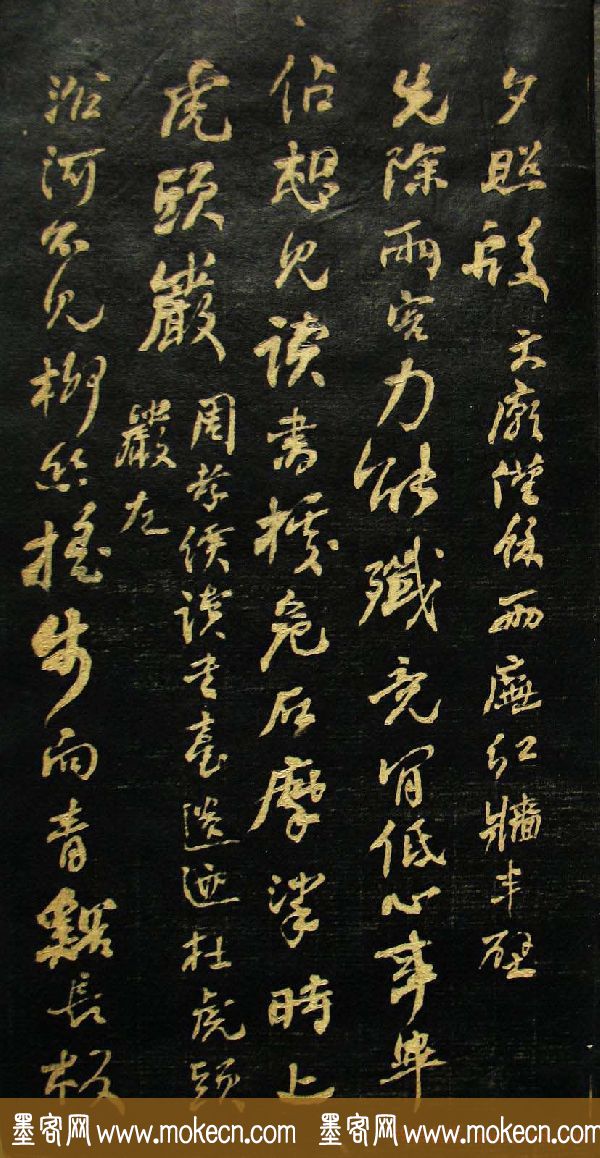 夕照殷 文廟僅餘兩廡紅牆半壁
先除兩害力能殲竟肯低心事畢
佔想見讀書石摩挲時上
虎頭巖 周孝侯讀書臺遺迹在虎頭
巖左
沿河不見柳絲搖步向青谿長板
墨客网 www.mokecn.com 墨客网 www.mokecn.com